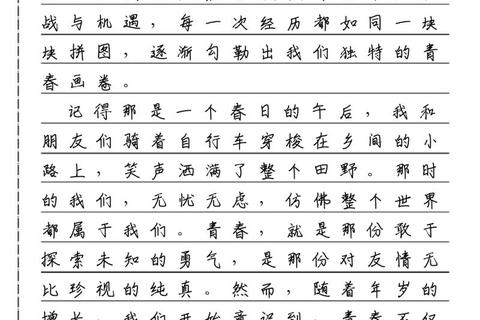 战与机遇，每一次经历都如同一块
块拼图，逐渐勾勒出我们独特的青
春画卷。
记得那是一个春日的午后，我和
朋友们骑着自行车穿梭在乡间的小
路上，笑声洒满了整个田野。那时
的我们，无忧无虑，仿佛整个世界
都属于我们。青春，就是那份敢于
探索未知的勇气，是那份对友情无
比珍视的纯真。然而，随着年岁的
增长，我们开始意识到，青春不仅